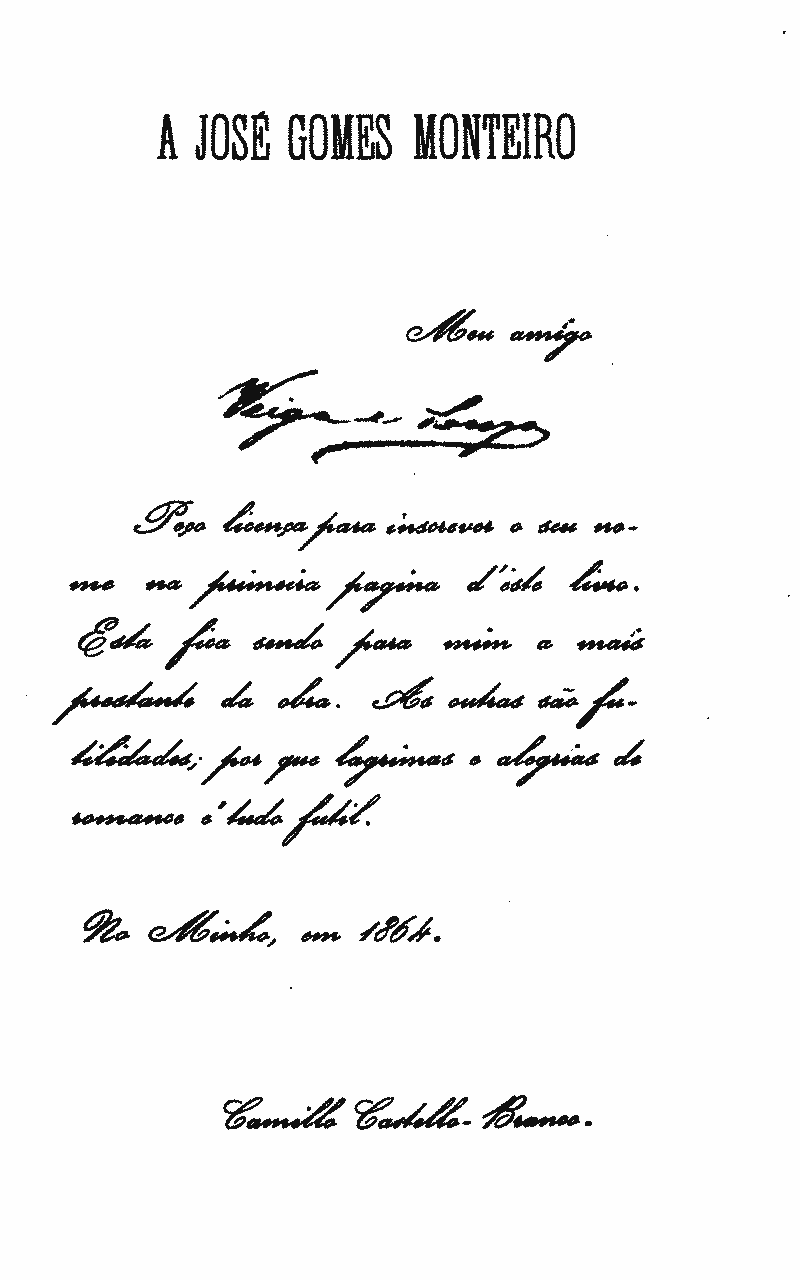 A JOSÉ GOMES MONTEIRO
Meu amigo
Veiga e Souza
Peço licença para inscrever o seu no-
me na primeira pagina d'éste livro.
Esta fica sendo para mim a mais
prestante da obra. As outras são fu-
tilidades; por que lagrimas e alegrias de
romance é tudo futil.
No Minho, em 1864.
Camillo Castello-Branco.